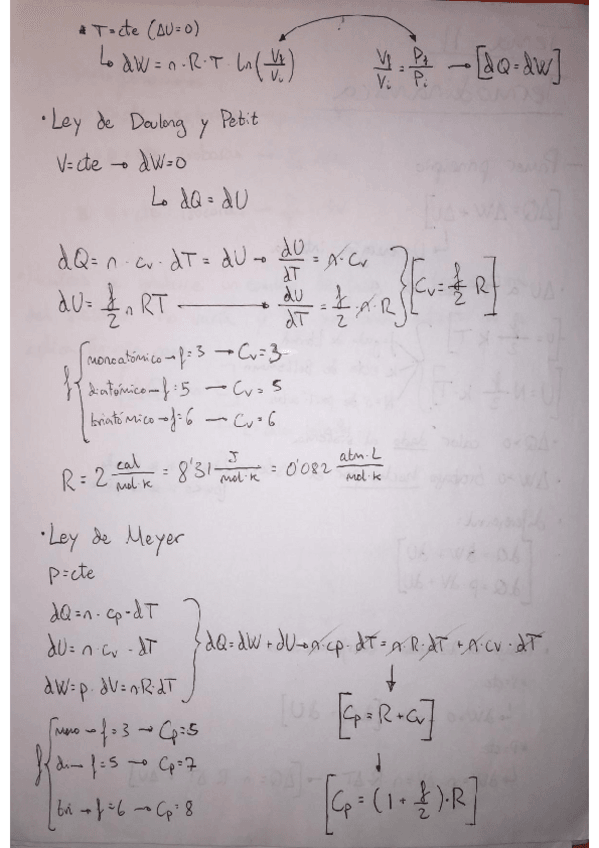 * T=cte (ΔU=0)
↳ dW = n·R·T·Ln(Vf/Vi) Vf/Vi = Pf/Pi → [dQ=dW]
· Ley de Doulong y Petit
V=cte → dW=0
↳ dQ = dU
dQ = n · cv · dT = dU → dU/dT = n·Cv
dU = f/2 n RT → dU/dT = f/2 · n · R } [Cv = f/2 R]
f { monoatómico → f=3 → Cv=3
diatómico → f=5 → Cv=5
triatómico → f=6 → Cv=6
R = 2 cal/mol·K = 8'31 J/mol·K = 0'082 atm·L/mol·K
· Ley de Meyer
P=cte
dQ = n · cp · dT
dU = n · cv · dT } dQ = dW + dU → n·cp·dT = n·R·dT + n·cv·dT
dW = p · dV = n·R·dT
↓
[Cp = R + Cv]
f { mono → f=3 → Cp=5
di → f=5 → Cp=7
tri → f=6 → Cp=8
↓
[Cp = (1 + f/2)·R]